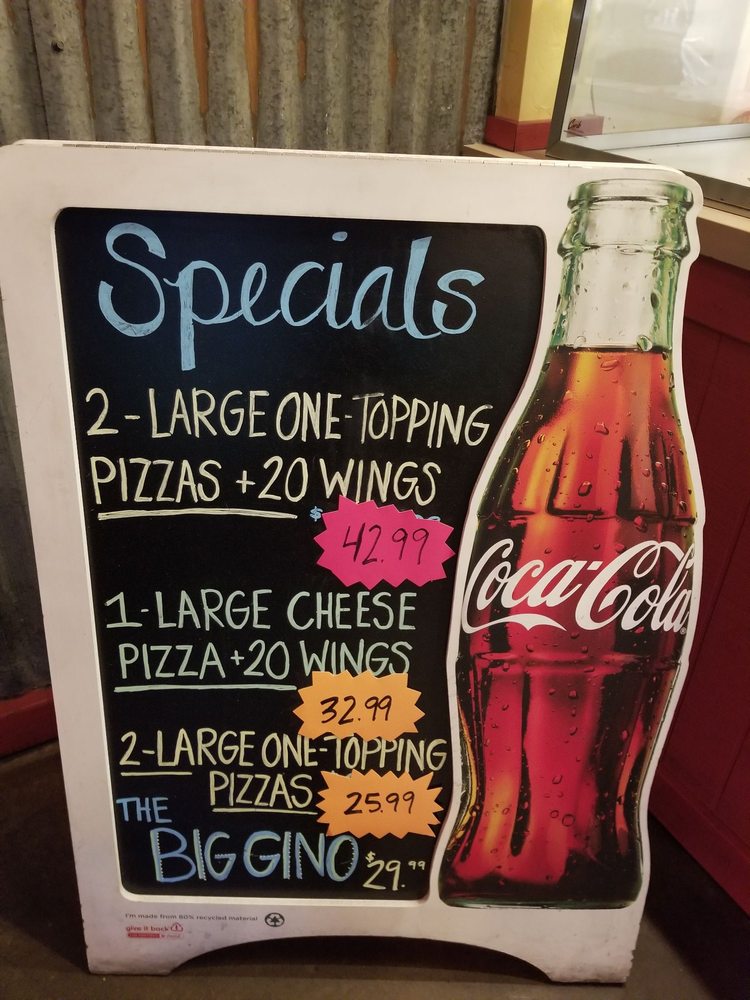 Specials
2-LARGE ONE-TOPPING
PIZZAS +20 WINGS
$
42.99
1-LARGE CHEESE
PIZZA +20 WINGS
32.99
2-LARGE ONE-TOPPING
PIZZAS
25.99
THE
BIG GINO $29.99
Coca-Cola
I'm made from 80% recycled material
give it back